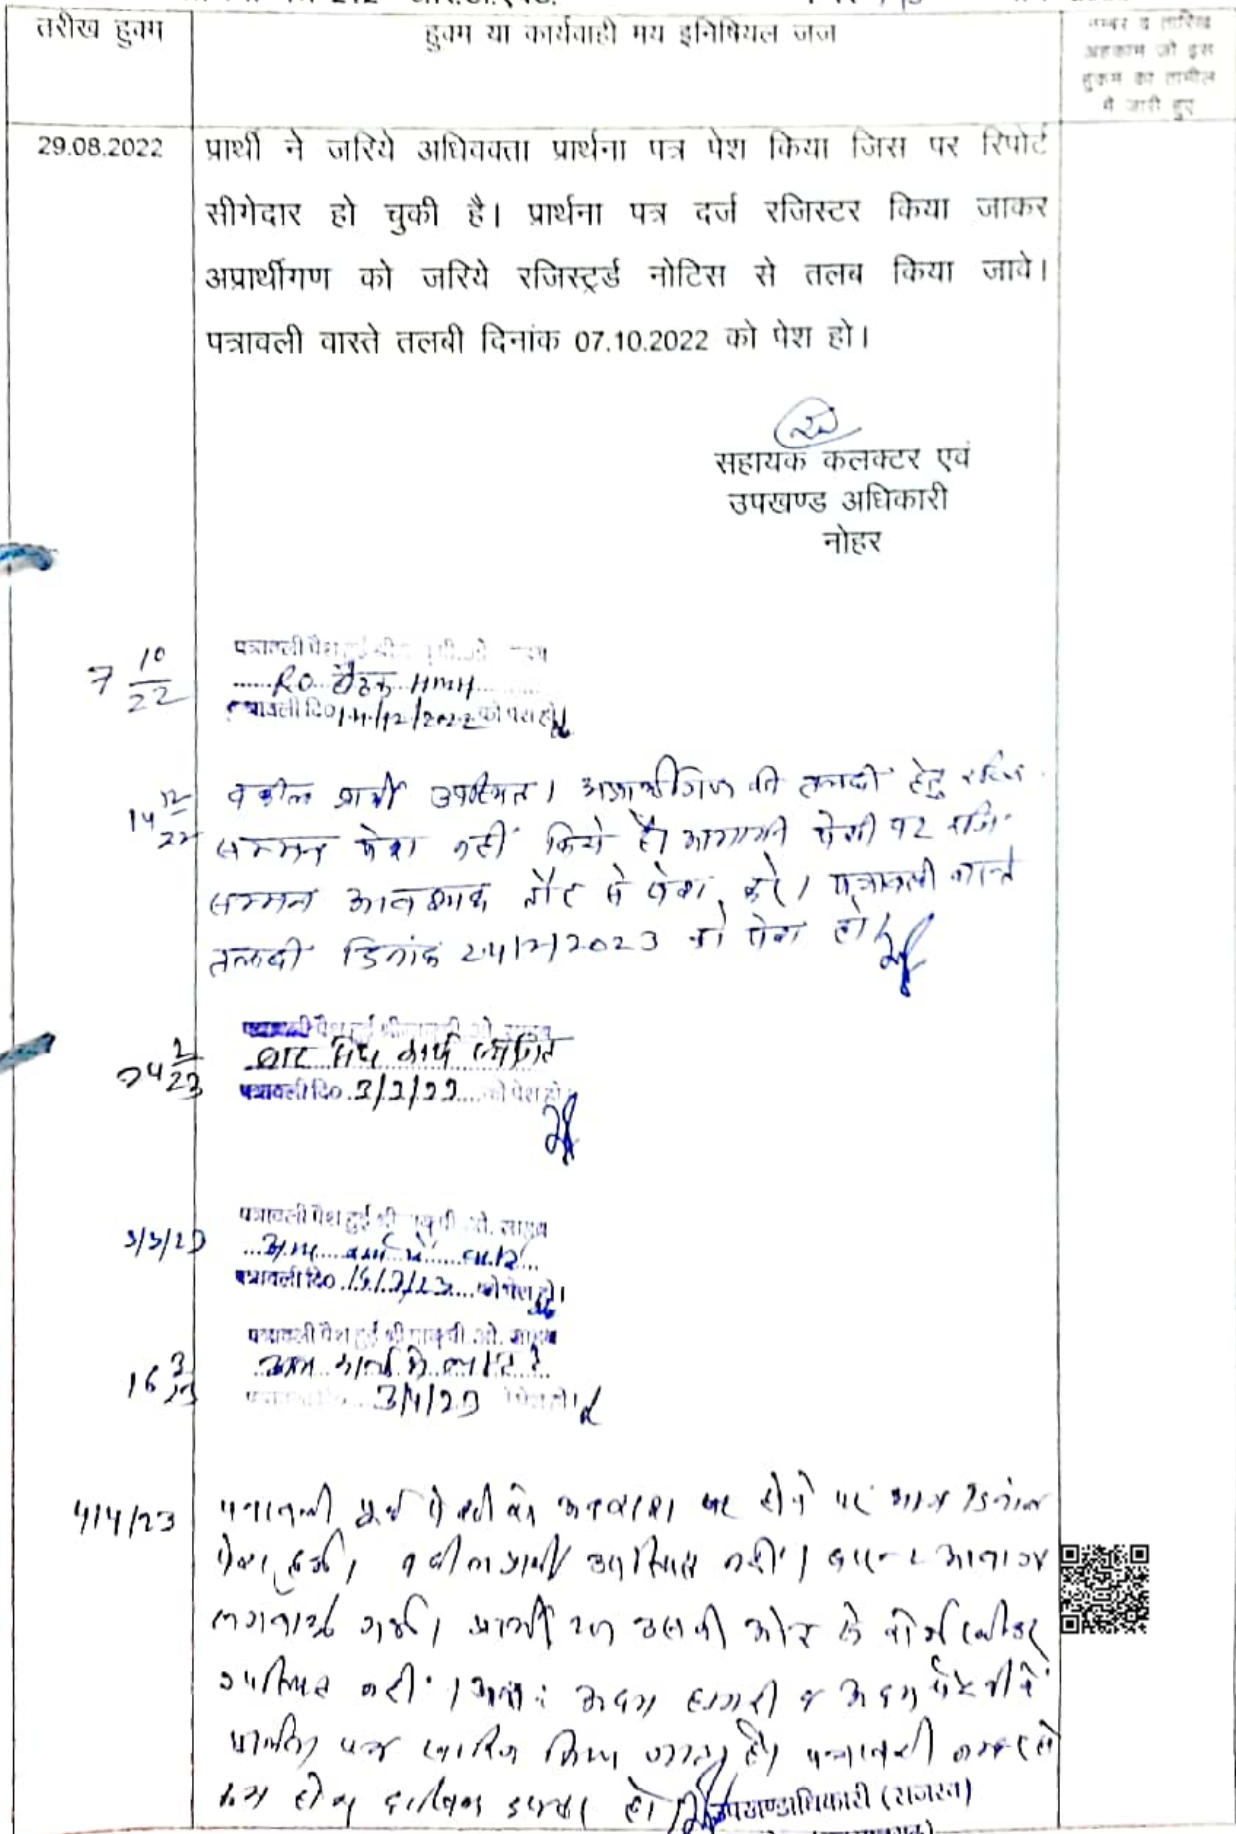 तरीख हुक्म
हुक्म या कार्यवाही मय इनिषियल जज
नम्बर व तारिख
अहकाम जो इस
हुकम का तामील
मे जारी हुए
29.08.2022
प्रार्थी ने जरिये अधिवक्ता प्रार्थना पत्र पेश किया जिस पर रिपोर्ट
सीगेदार हो चुकी है। प्रार्थना पत्र दर्ज रजिस्टर किया जाकर
अप्रार्थीगण को जरिये रजिस्ट्रर्ड नोटिस से तलब किया जावे।
पत्रावली वास्ते तलबी दिनांक 07.10.2022 को पेश हो।
सहायक कलक्टर एवं
उपखण्ड अधिकारी
नोहर
7 10/22
पत्रावली पेश हुई श्री
RO बैठक HMH
पत्रावली दि० 14/12/2022 को पेश हो
14 12/22
वकील प्रार्थी उपस्थित। अप्रार्थीगण की तलबी हेतु रजि.
सम्मन पेश नहीं किये है। आगामी पेशी पर रजि
सम्मन आवश्यक तौर से पेश करे। पत्रावली वास्ते
तलबी दिनांक 24/2/2023 को पेश हो।
24 2/23
पत्रावली पेश हुई
पत्रावली दि० को पेश हो
3/3/23
पत्रावली पेश हुई श्री ओ. साहब
पत्रावली दि० को पेश हो।
16 3/23
पत्रावली पेश हुई श्री ओ. साहब
3/4/23
4/4/23
पत्रावली पूर्व पेशी को अवकाश पर होने पर आज दिनांक
पेश हुई। वकील प्रार्थी उपस्थित नहीं। आवाज
लगवाई गई। प्रार्थी उसकी ओर से कोई
उपस्थित नहीं। अतः अदम हाजरी व अदम पैरवी में
प्रार्थना पत्र खारिज किया जाता है। पत्रावली नम्बर से
कम होकर दाखिल दफ्तर हो।
उपखण्डाधिकारी (राजस्व)